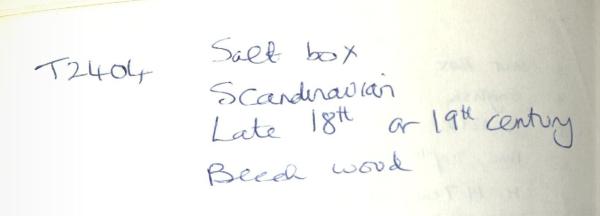 T2404 Salt box
Scandinavian
Late 18th or 19th century
Beech wood